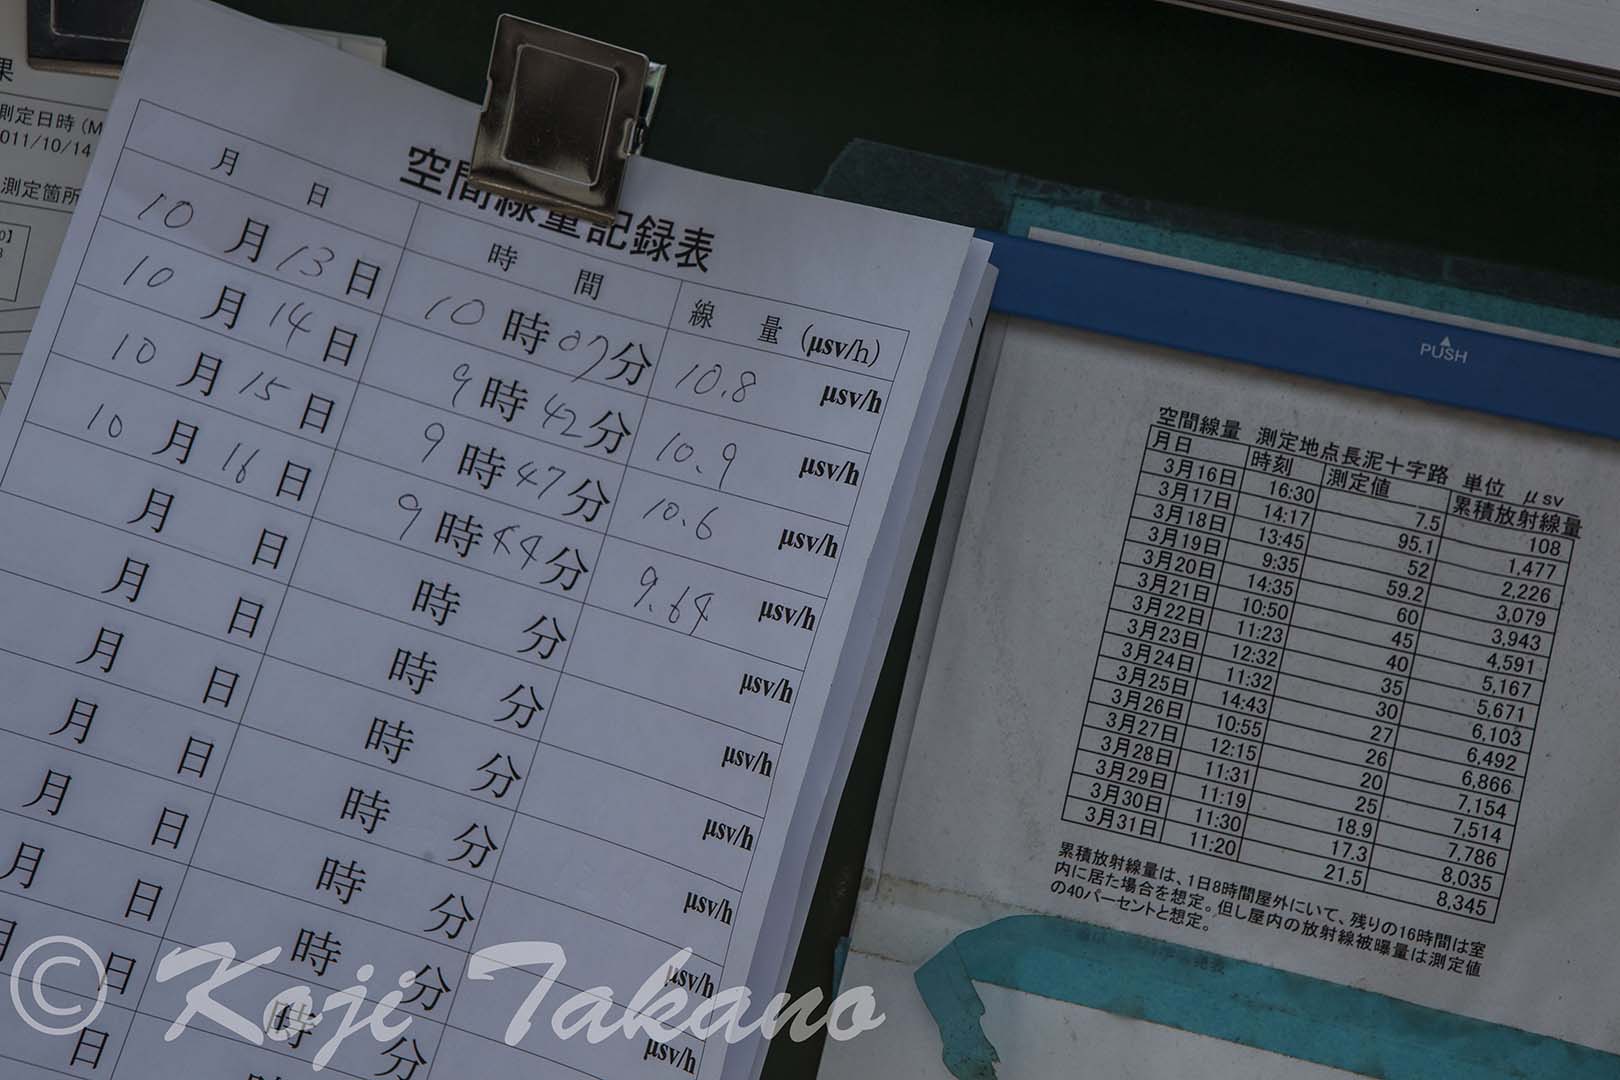 果
測定日時 (M
011/10/14
測定箇所
空間線量記録表
月 日 時 間 線 量 (μsv/h)
10月13日 10時07分 10.8 μsv/h
10月14日 9時42分 10.9 μsv/h
10月15日 9時47分 10.6 μsv/h
10月16日 9時44分 9.64 μsv/h
月 日 時 分 μsv/h
月 日 時 分 μsv/h
月 日 時 分 μsv/h
月 日 時 分 μsv/h
月 日 時 分 μsv/h
月 日 時 分 μsv/h
月 日 時 分
日
PUSH
空間線量 測定地点長泥十字路 単位 μsv
月日 時刻 測定値 累積放射線量
3月16日 16:30 7.5 108
3月17日 14:17 95.1 1,477
3月18日 13:45 52 2,226
3月19日 9:35 59.2 3,079
3月20日 14:35 60 3,943
3月21日 10:50 45 4,591
3月22日 11:23 40 5,167
3月23日 12:32 35 5,671
3月24日 11:32 30 6,103
3月25日 14:43 27 6,492
3月26日 10:55 26 6,866
3月27日 12:15 20 7,154
3月28日 11:31 25 7,514
3月29日 11:19 18.9 7,786
3月30日 11:30 17.3 8,035
3月31日 11:20 21.5 8,345
累積放射線量は、1日8時間屋外にいて、残りの16時間は室
内に居た場合を想定。但し屋内の放射線被曝量は測定値
の40パーセントと想定。
© Koji Takano